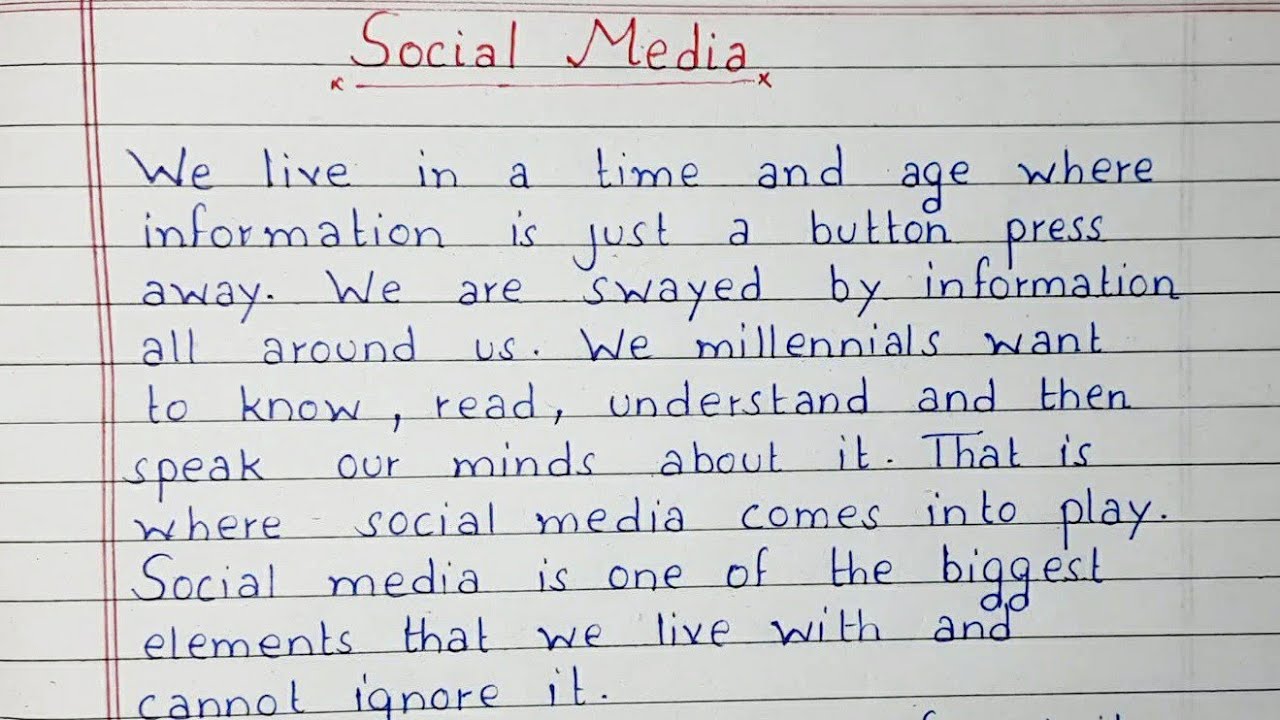 Social Media
We live in a time and age where
information is just a button press
away. We are swayed by information
all around us. We millennials want
to know, read, understand and then
speak our minds about it. That is
where social media comes into play.
Social media is one of the biggest
elements that we live with and
cannot ignore it.